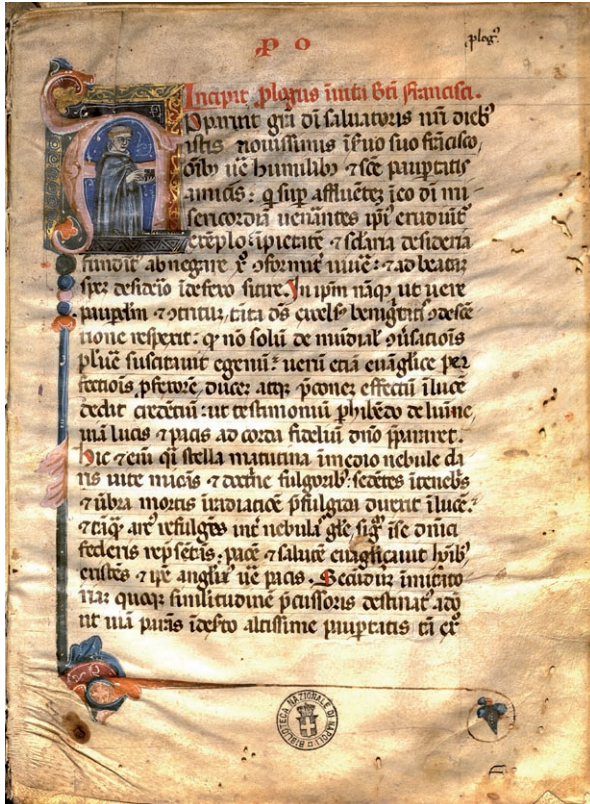 P O
plogꝰ
Incipit ꝓlogus ĩ uita bti Francisci.
Apparuit grã dĩ saluatoris nr̃i dieb'
istis nouissimis ĩ s'uo suo frãcisco,
oĩbꝰ ue᷑ humilibꝰ ⁊ sc̃e paup̱tatis
amicis: q̇ sup̱ affluẽtez ĩ eo dĩ mi
sericordiã uen̾antes ip̃iꝰ erudiũt᷑
exẽplo ĩpietatẽ ⁊ sc̃laria desideria
fundit' abnegare xp̃o ꝯformit᷑ uiue᷑: ⁊ ad beatã
spẽ desid'io ĩdefeso sitire. In ip̃m nãq̢ ut uere
paup̱clm̃ ⁊ ꝯtritũ, tãta d̃s excels' benignitatis ꝯdescẽ
sione respexit: ꝙ nõ solũ de mũdial' ꝯu̾satiõis
plue᷑ suscitauit egenũ: uerũ etiã euãglice per
fectiõis ꝓfesorẽ, ducẽ atq̢ p̃conez effectũ ĩ lucẽ
dedit credẽtiũ: ut testimoniũ ꝑhibẽdo de luĩne,
uiã lucis ⁊ pacis ad corda fideliũ dño p̃pararet.
Hic ⁊ eni᷑ q̃i stella matutina ĩ medio nebule cla
ris uite micãs ⁊ doctrĩe fulgorib': sedẽtes ĩ tenebris
⁊ ũbra mortis irradiatiõe p̃fulgida direxit ĩ lucẽ.
⁊ tãq̢ arcꝰ refulgẽs int᷑ nebulas gl'e, sigñ ĩ se dñici
federis rep̃sẽtãs, pacẽ ⁊ salutẽ euãgliçauit hoĩb'
existẽs ⁊ ip̃e angl'us ue᷑ pacis. Secũdũ ĩmitato
riaz quoq̢ similitudinẽ p̃cussoris destinat' a dõ
ut uiã parãs ĩ des'to altissime paup̱tatis tã ex
BIBLIOTECA NAZIONALE DI NAPOLI